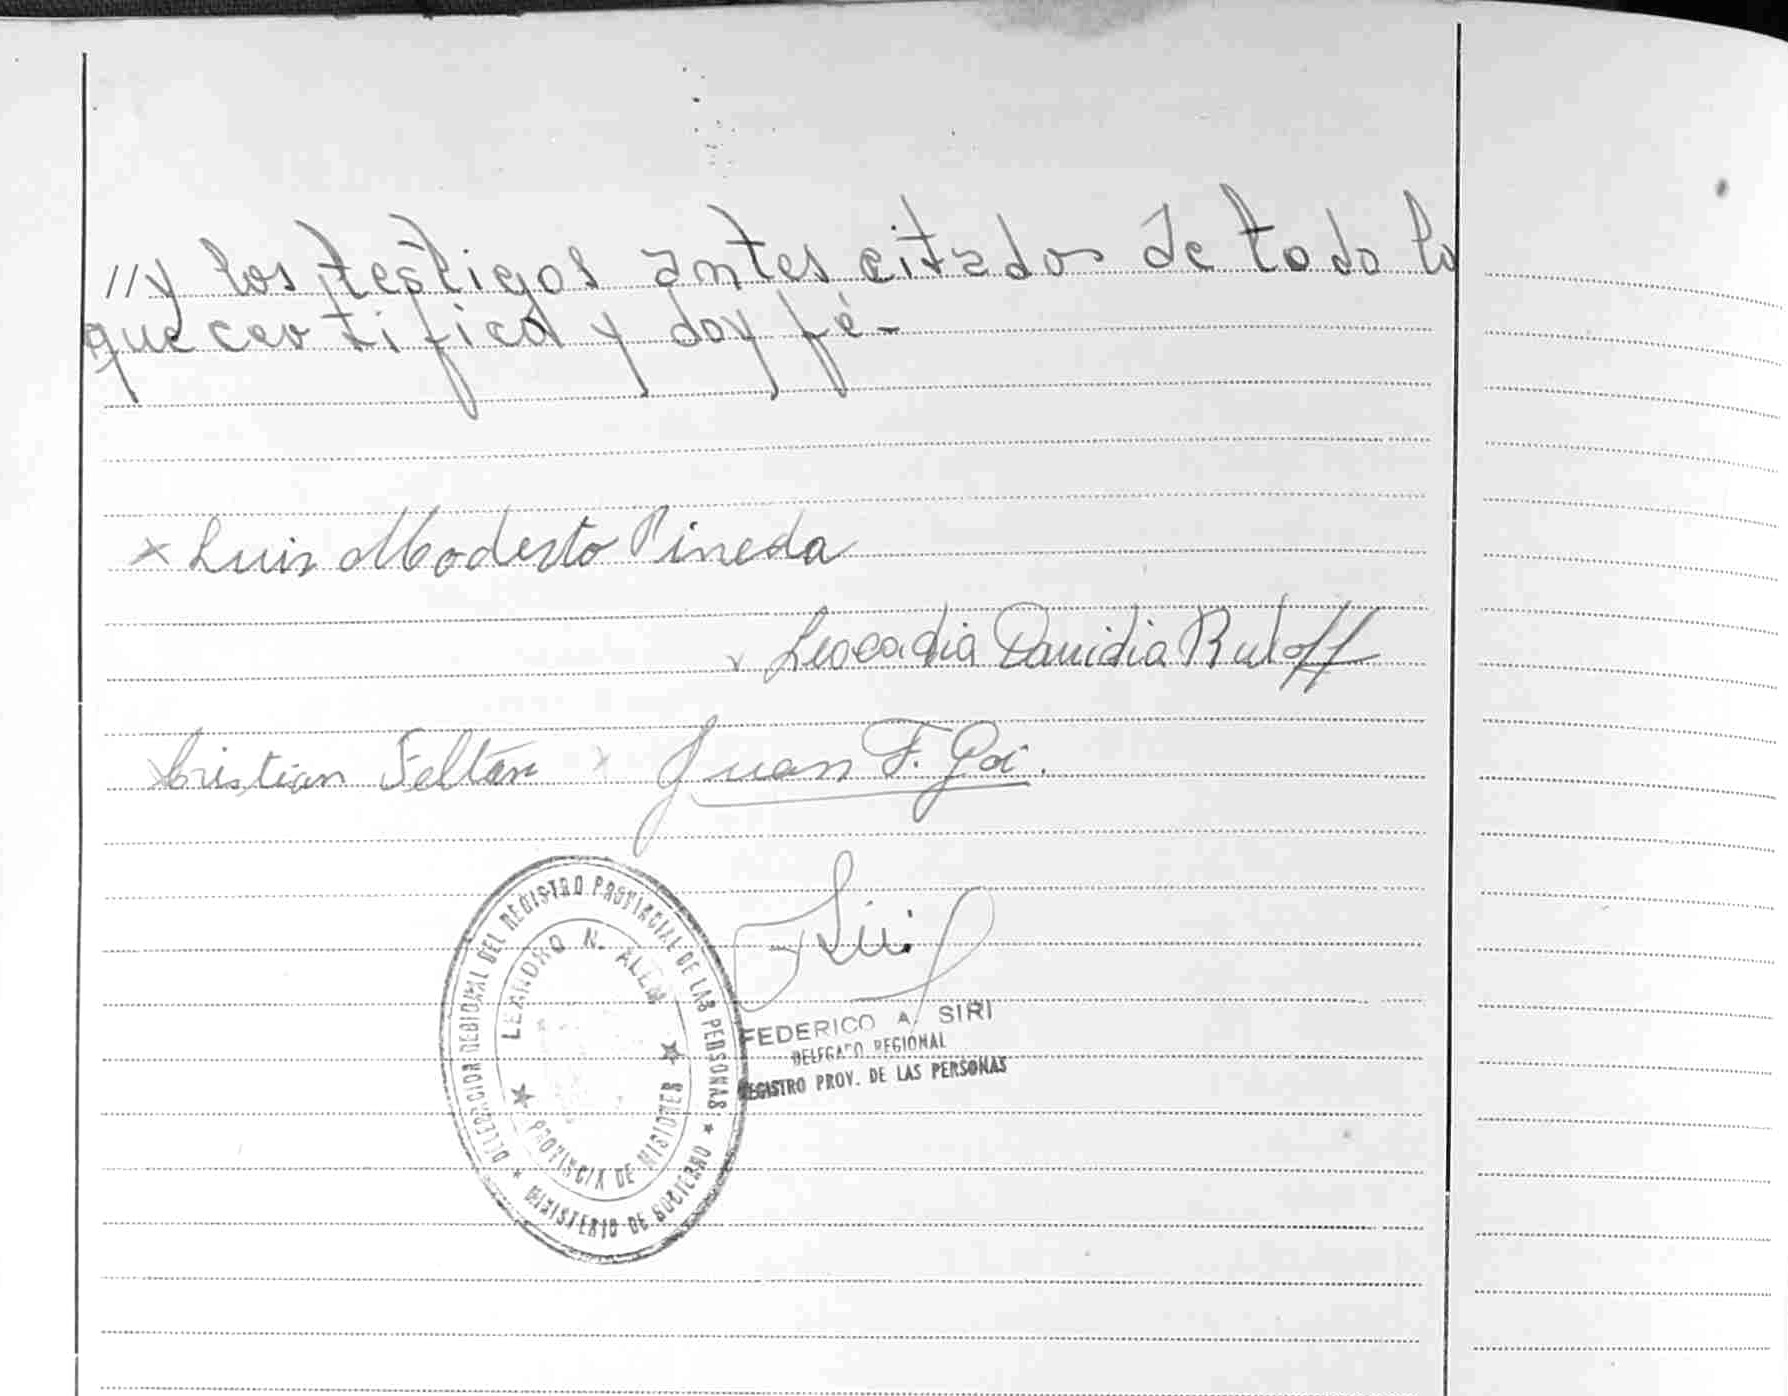 //y los testigos antes citados de todo lo
que certifico y doy fé-
x Luis Modesto Pineda
Leocadia Davidia Rutoff
Cristian Feltan x Juan F. Goi.
Siri
DELEGACION REGIONAL DEL REGISTRO PROVINCIAL DE LAS PERSONAS
★ MINISTERIO DE GOBIERNO ★
LEANDRO N. ALEM
★ PROVINCIA DE MISIONES ★
FEDERICO A. SIRI
DELEGADO REGIONAL
REGISTRO PROV. DE LAS PERSONAS